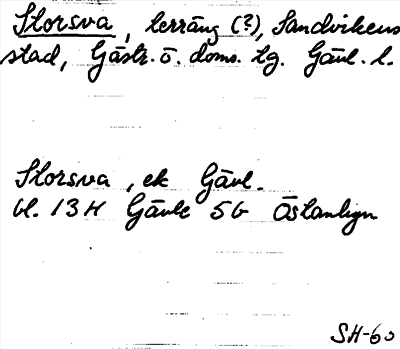 Storsva, terräng (?), Sandvikens
stad, Gästr. ö. doms. tg. Gävl. l.
Storsva, ek Gävl.
bl. 13H Gävle 5G Östanbyn
SH-60